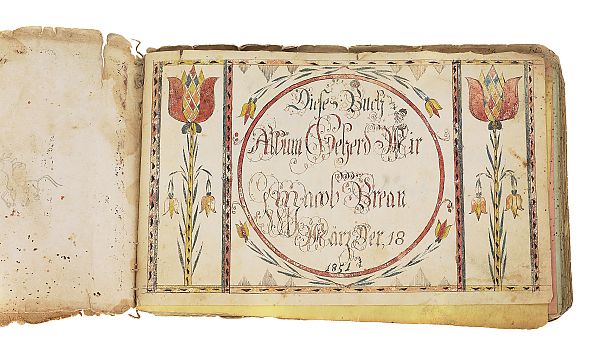 Dieses Buch
Album Geherd Mir
Jacob Brean
März Der. 18
1851